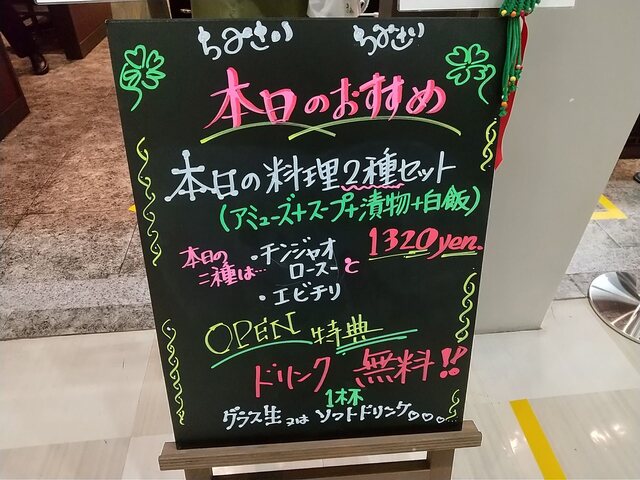 ちみさい ちみさい
本日のおすすめ
本日の料理2種セット
(アミューズ+スープ+漬物+白飯)
1320yen.
本日の
二種は…
・チンジャオ
ロースーと
・エビチリ
OPEN 特典
ドリンク 無料!!
1杯
グラス生 又は ソフトドリンク♡♡♡...